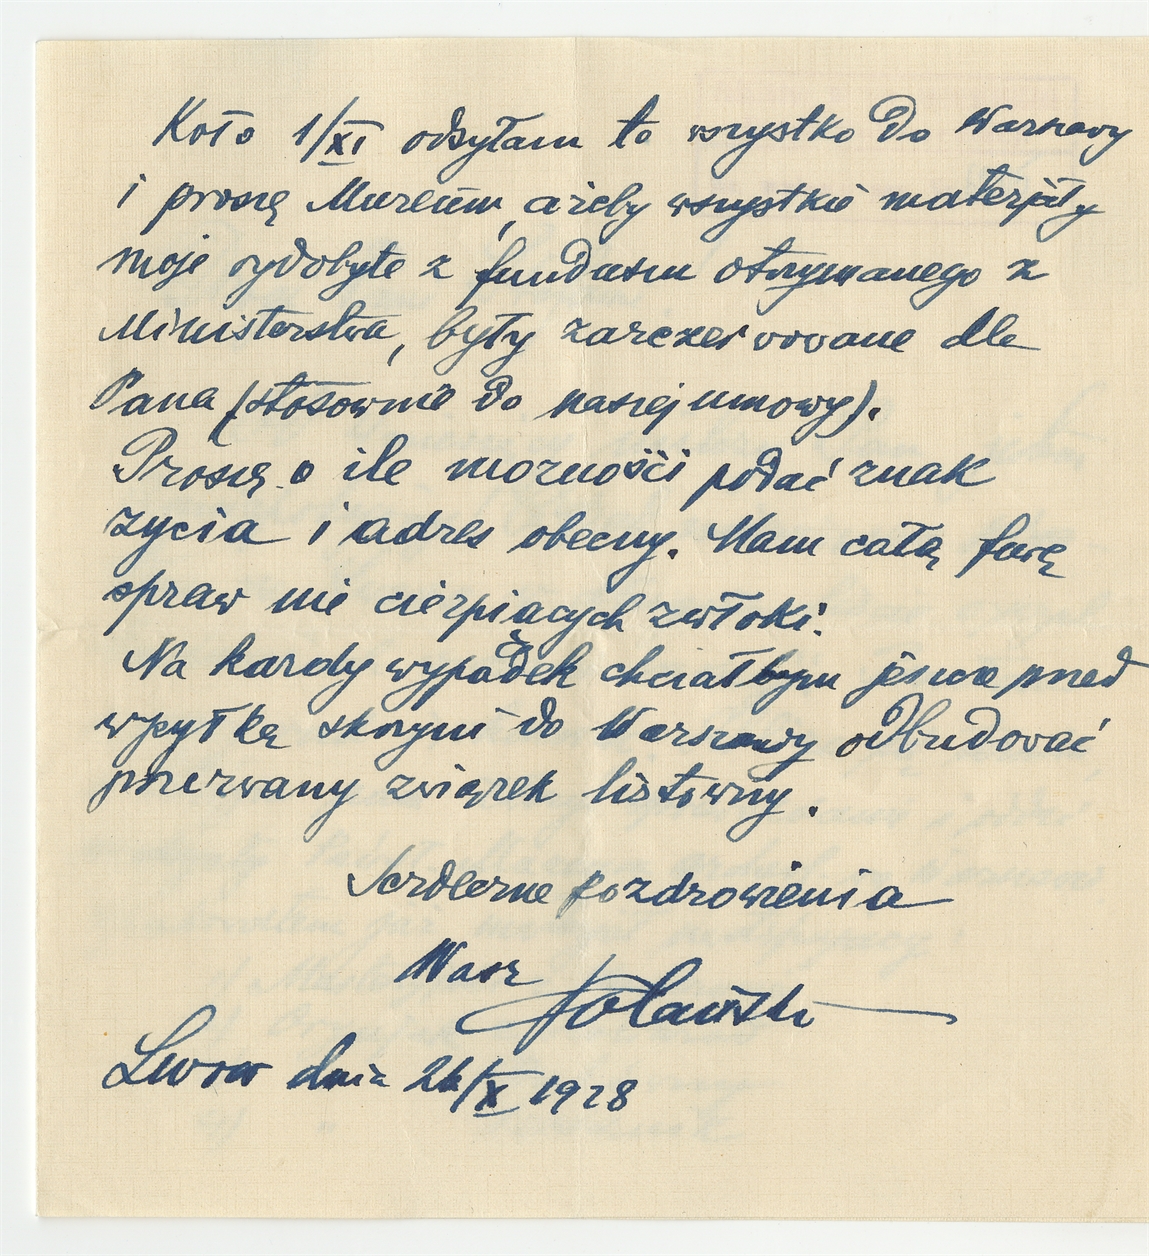 Koło 1/XI odsyłam to wszystko do Warszawy
i proszę Muzeum, ażeby wszystkie materjały
moje wydobyte z funduszu otrzymanego z
Ministerstwa, były zarezerwowane dla
Pana (stosownie do naszej umowy).
Proszę o ile możności podać znak
życia i adres obecny. Mam całą furę
spraw nie cierpiących zwłoki.
Na każdy wypadek chciałbym jeszcze przed
wysyłką skrzyń do Warszawy odbudować
przerwany związek listowny.
Serdeczne pozdrowienia
Wasz
Lwów dnia 26/X 1928